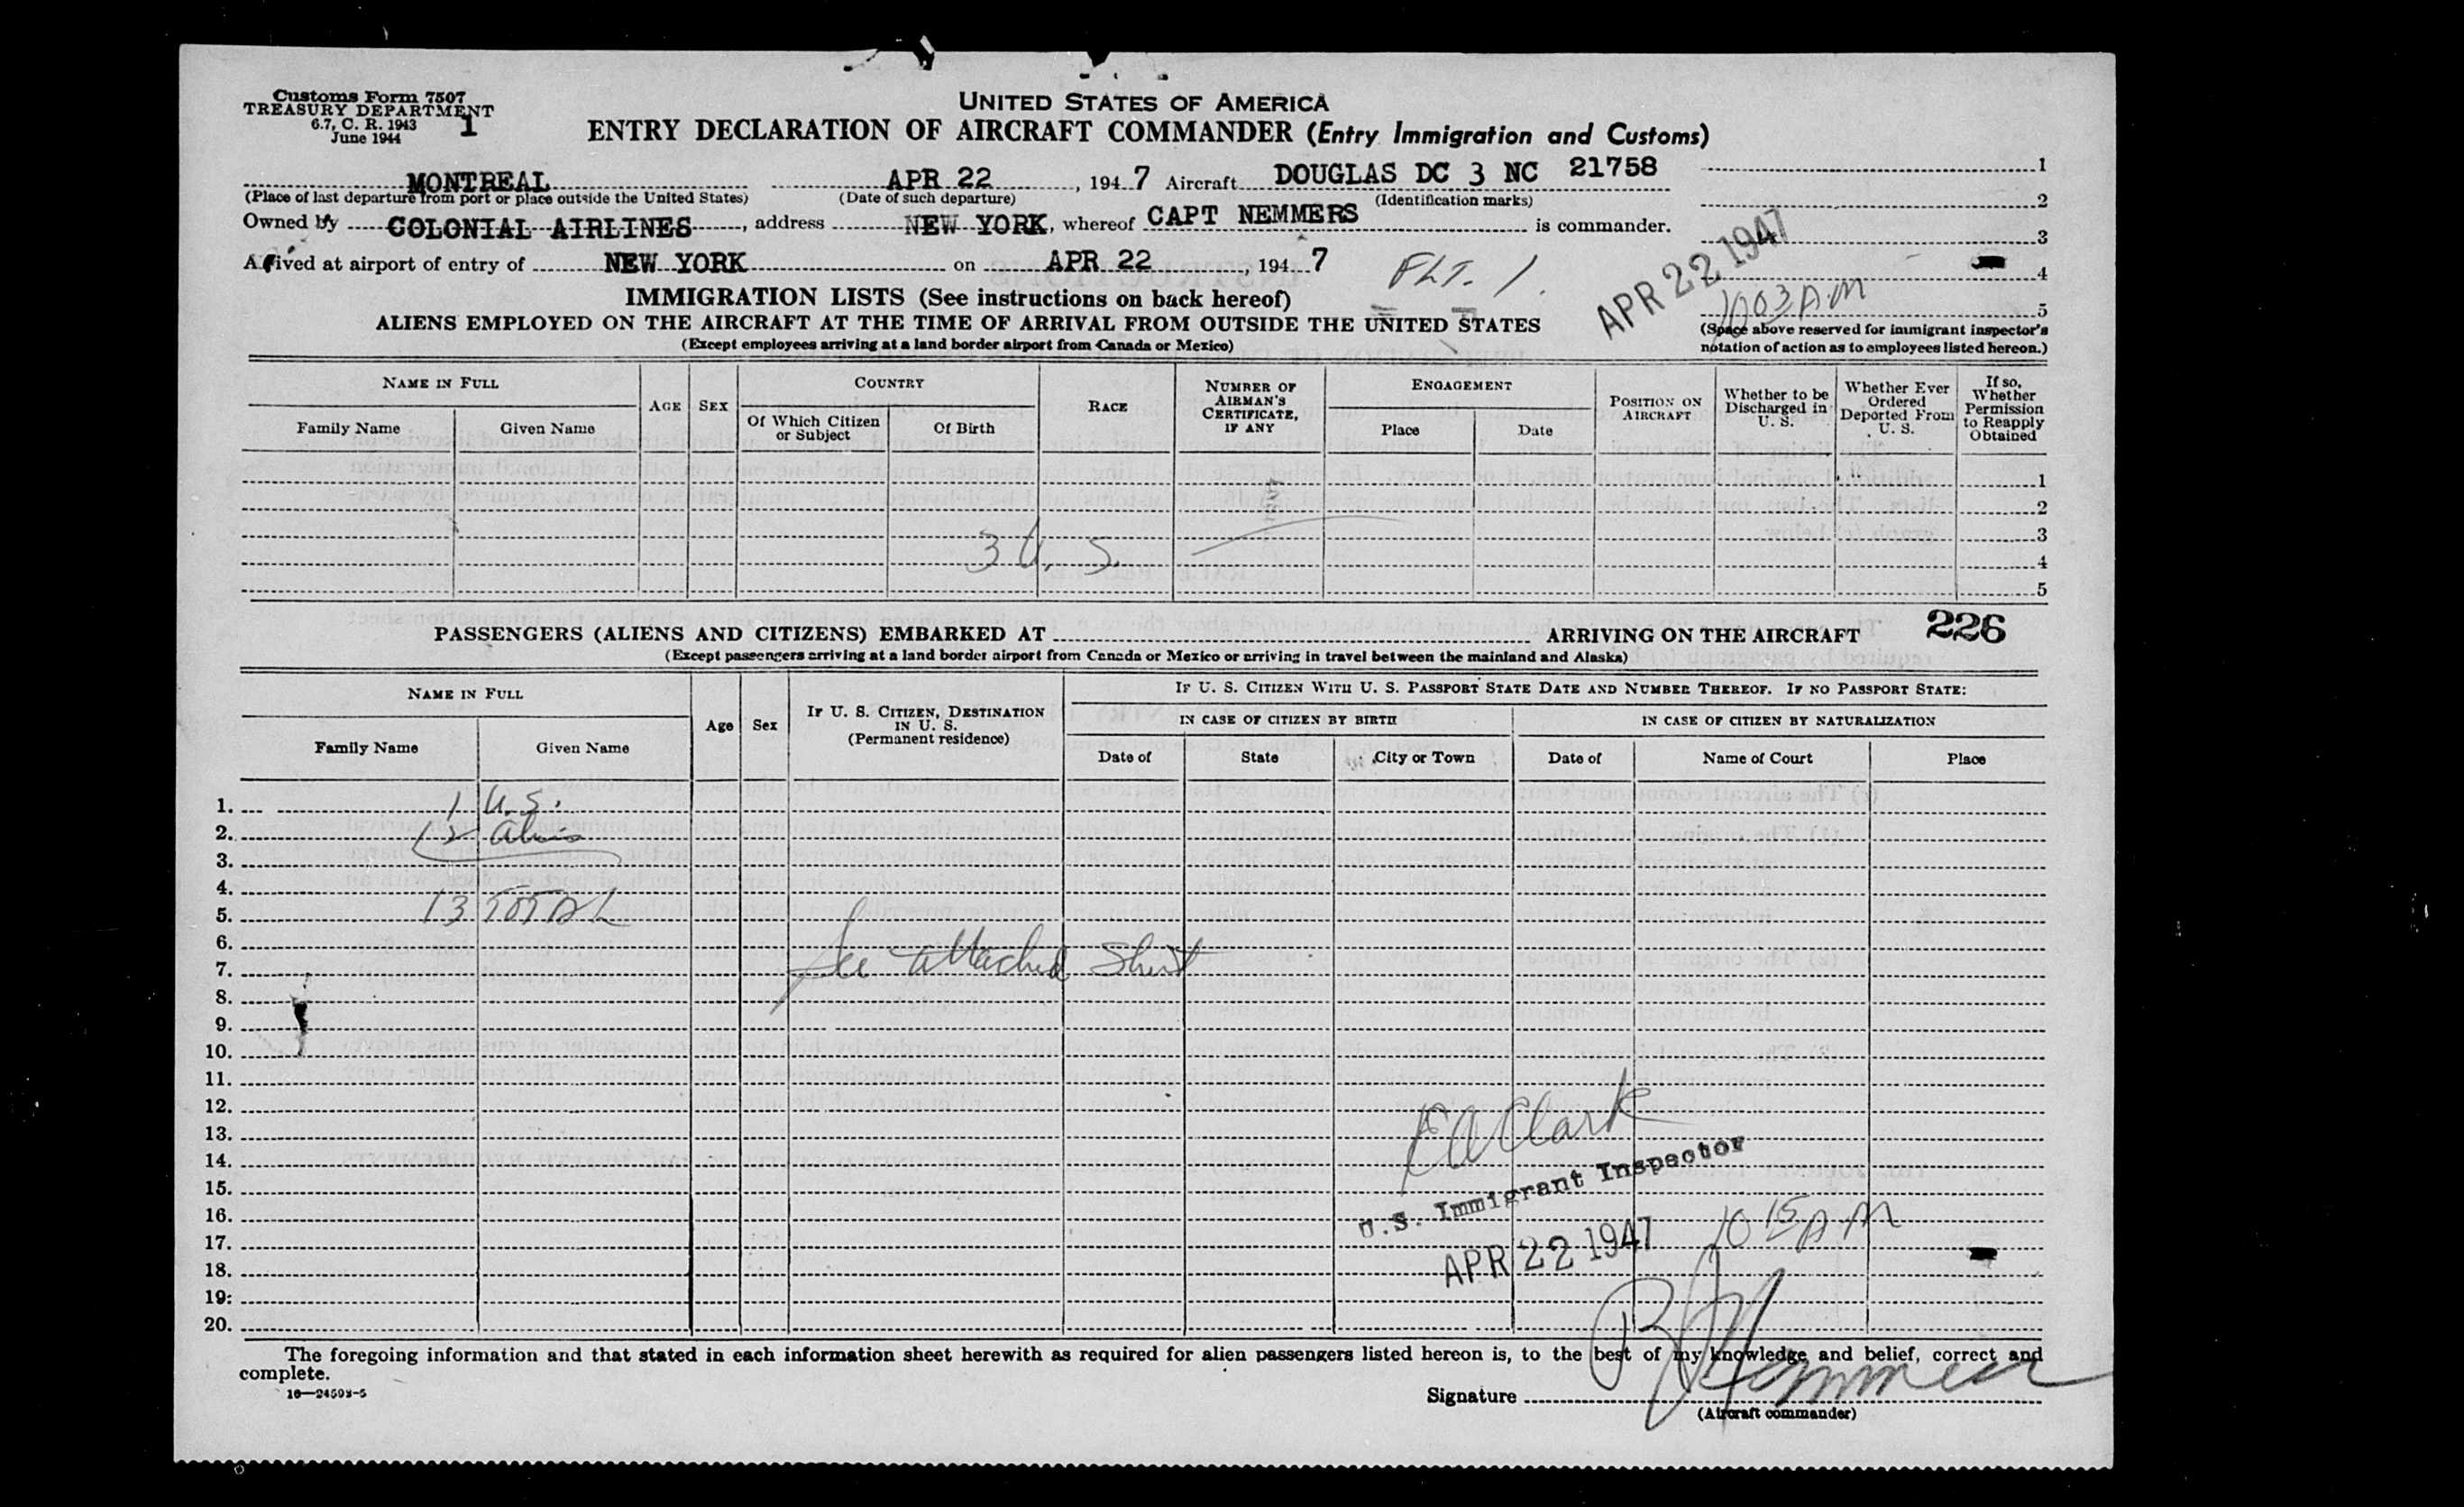 Customs Form 7507
TREASURY DEPARTMENT
6.7, C. R. 1943
June 1944
1
UNITED STATES OF AMERICA
ENTRY DECLARATION OF AIRCRAFT COMMANDER (Entry Immigration and Customs)
MONTREAL APR 22, 1947 Aircraft DOUGLAS DC 3 NC 21758
(Place of last departure from port or place outside the United States) (Date of such departure) (Identification marks)
Owned by COLONIAL AIRLINES, address NEW YORK, whereof CAPT NEMMERS is commander.
Arrived at airport of entry of NEW YORK on APR 22, 1947
FLT. 1.
1
2
3
4
5
APR 22 1947
1003 A.M
(Space above reserved for immigrant inspector's
notation of action as to employees listed hereon.)
IMMIGRATION LISTS (See instructions on back hereof)
ALIENS EMPLOYED ON THE AIRCRAFT AT THE TIME OF ARRIVAL FROM OUTSIDE THE UNITED STATES
(Except employees arriving at a land border airport from Canada or Mexico)
NAME IN FULL
Family Name Given Name
AGE
SEX
COUNTRY
Of Which Citizen
or Subject
Of Birth
RACE
NUMBER OF
AIRMAN'S
CERTIFICATE,
IF ANY
ENGAGEMENT
Place Date
POSITION ON
AIRCRAFT
Whether to be
Discharged in
U. S.
Whether Ever
Ordered
Deported From
U. S.
If so,
Whether
Permission
to Reapply
Obtained
1
2
3
4
5
3 U. S.
226
PASSENGERS (ALIENS AND CITIZENS) EMBARKED AT ARRIVING ON THE AIRCRAFT
(Except passengers arriving at a land border airport from Canada or Mexico or arriving in travel between the mainland and Alaska)
NAME IN FULL
Family Name Given Name
Age
Sex
IF U. S. CITIZEN, DESTINATION
IN U. S.
(Permanent residence)
IF U. S. CITIZEN WITH U. S. PASSPORT STATE DATE AND NUMBER THEREOF. IF NO PASSPORT STATE:
IN CASE OF CITIZEN BY BIRTH IN CASE OF CITIZEN BY NATURALIZATION
Date of State City or Town Date of Name of Court Place
1. 1 U.S.
2. 12 Aliens
3.
4.
5. 13 TOTAL
6.
7. See attached Sheet
8.
9.
10.
11.
12.
13. E A Clark
14.
15. U.S. Immigrant Inspector
16. 10 15 A.M
17. APR 22 1947
18.
19.
20.
The foregoing information and that stated in each information sheet herewith as required for alien passengers listed hereon is, to the best of my knowledge and belief, correct and
complete.
16—24593-5
Signature Nemmers
(Aircraft commander)